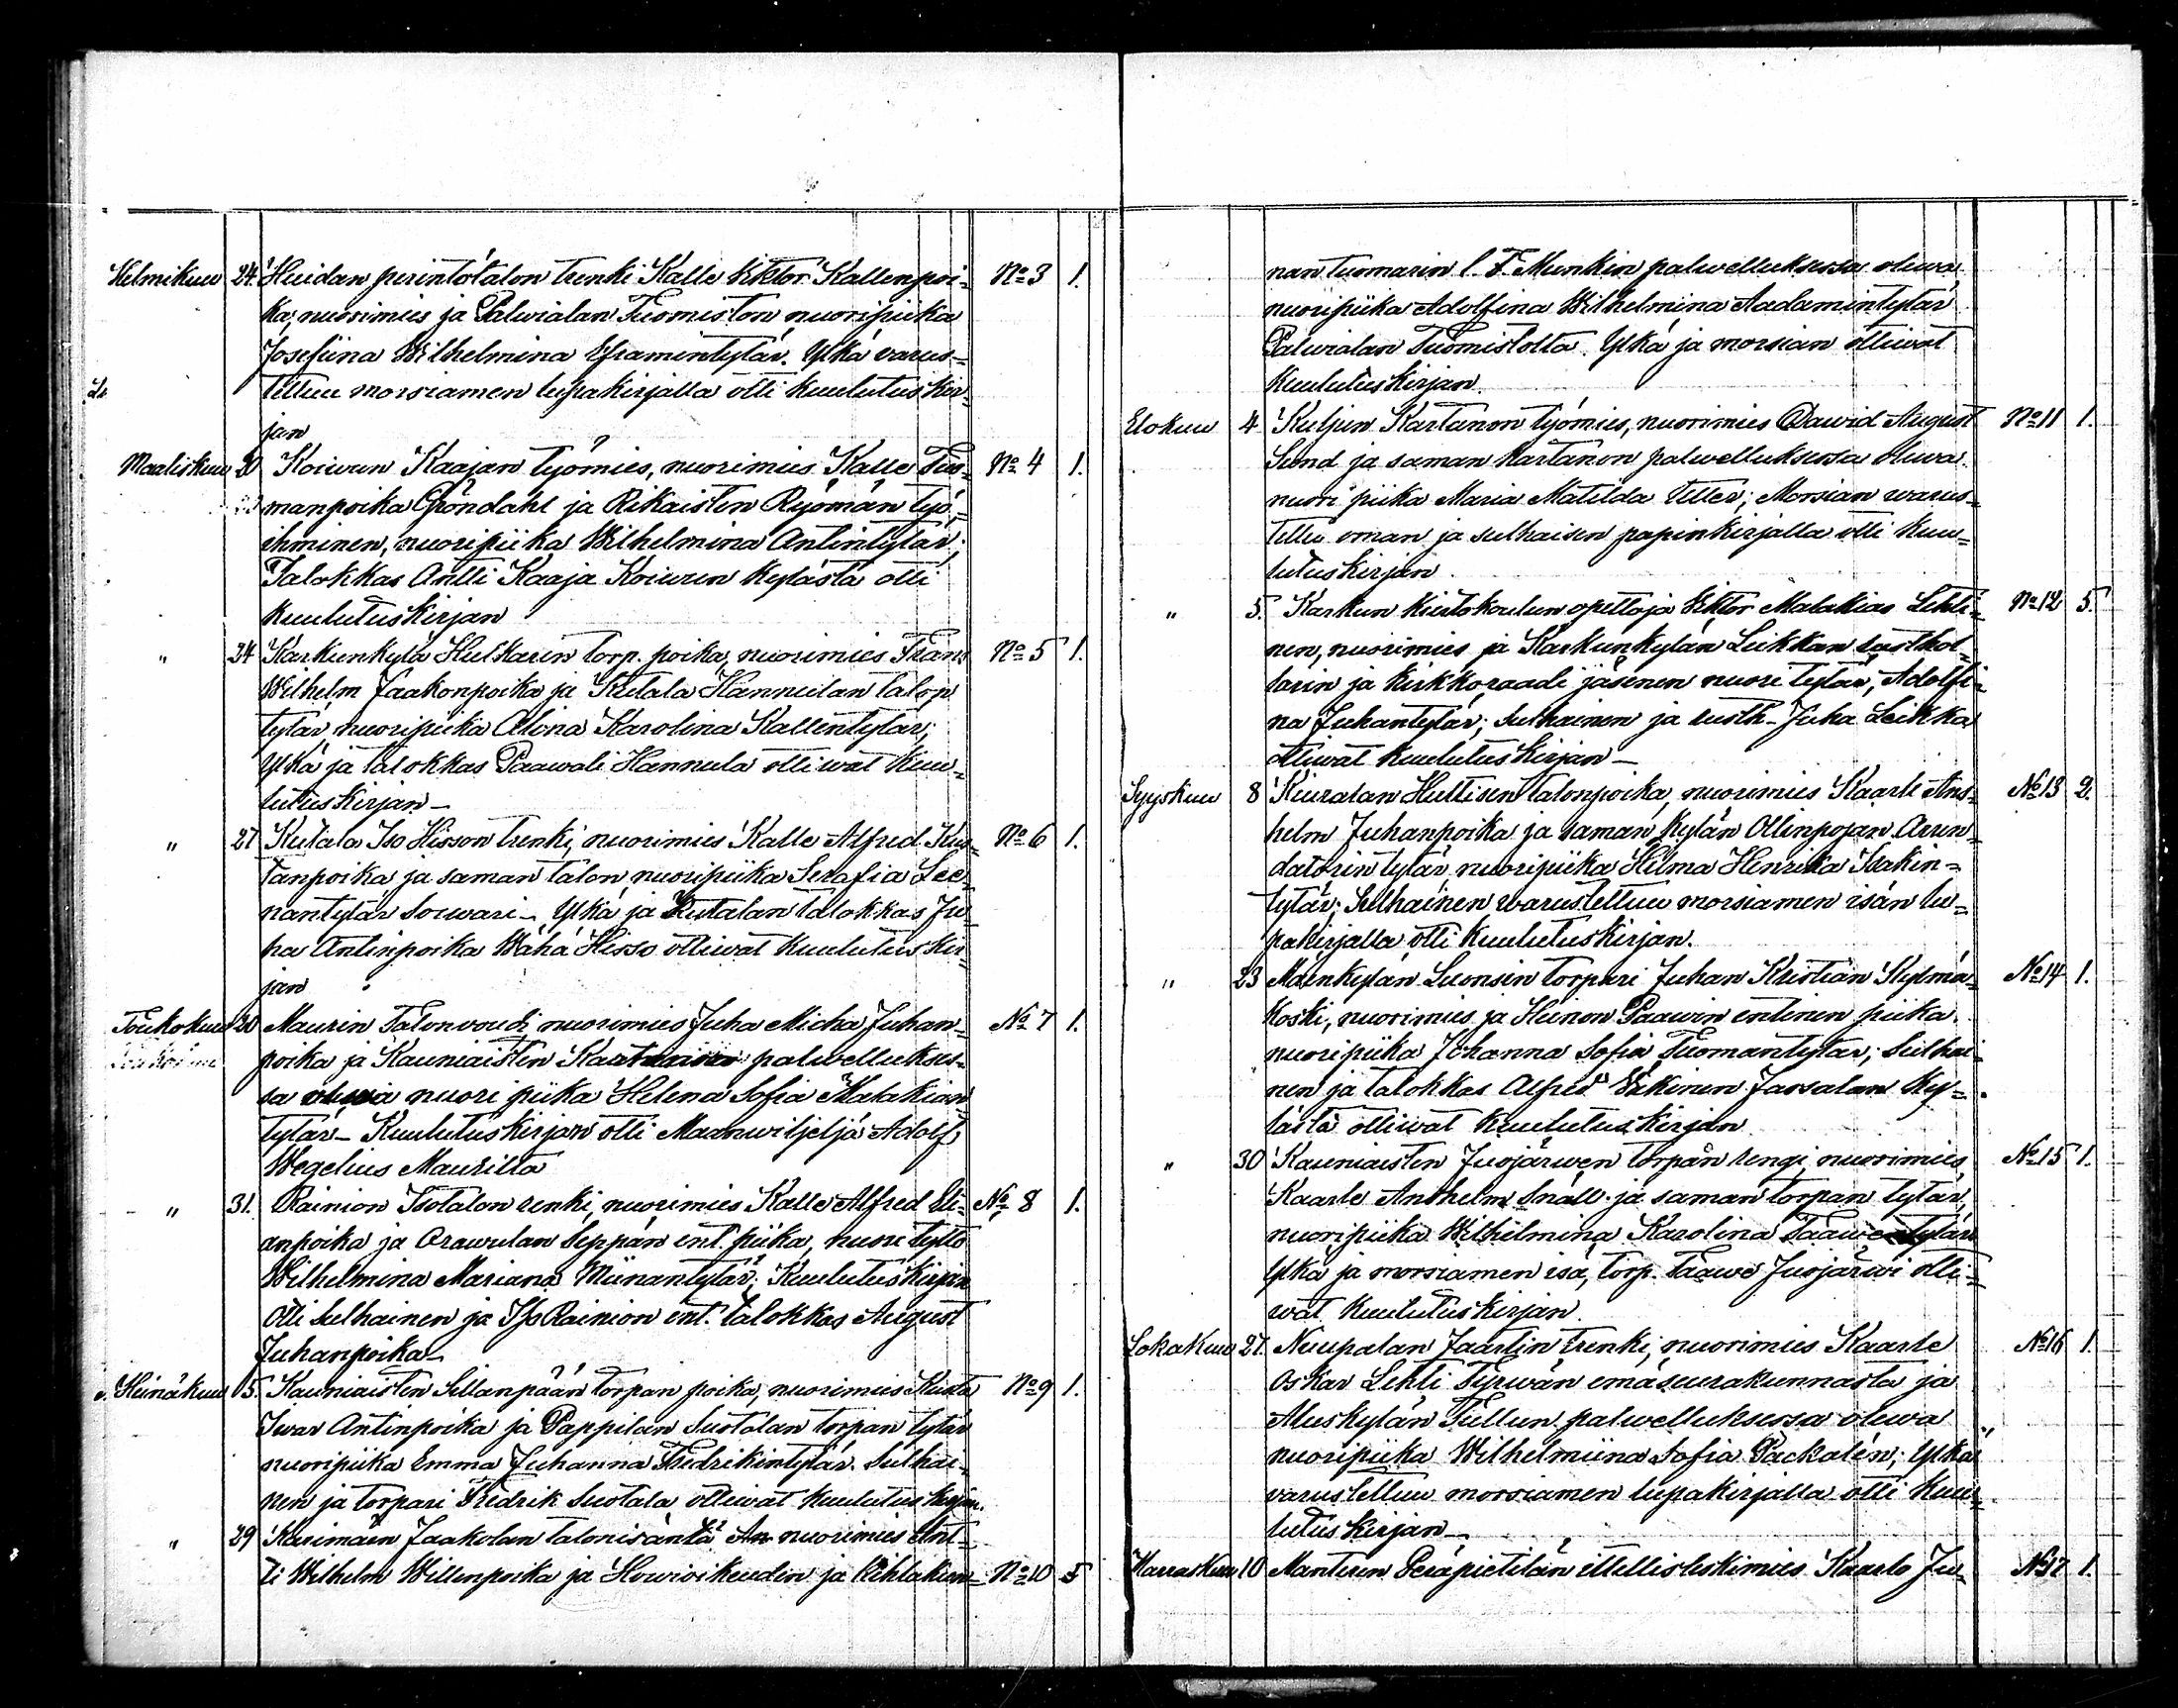 Helmikuu 24. Huidan perintötalon trenki Kalle Viktor Kallenpoi- No 3 1.
ka, nuorimies ja Palvialan Tuomiston nuoripiika
Josefiina Wilhelmina Eframintytär. Ylkä varus-
tettuu morsiamen lupakirjalla otti kuulutuskir-
jan
Maaliskuu 20 Koivun Kaajan työmies, nuorimies Kalle Tuo- No 4 1.
manpoika Gröndahl ja Rikaisten Ryömän työ-
ihminen, nuoripiika Wilhelmina Antintytär;
Talokkas Antti Kaaja Koivun kylästä otti
kuulutuskirjan
" 24 Karkunkylä Hulkarin torp. poika, nuorimies Frans No 5 1.
Wilhelm Jaakonpoika ja Kutala Hannulan talon
tytär nuoripiika Alina Karolina Kallentytär;
Ylkä ja talokkas Paawali Hannula ottiwat kuu-
lutuskirjan-
" 27 Kutala Iso Hisson trenki, nuorimies Kalle Alfred Kus- No 6 1.
tanpoika ja saman talon nuoripiika Serafia Lee-
nantytär Sorwari- Ylkä ja Kutalan talokkas Ju-
ha Antinpoika Wähä Hisso ottiwat kuulutuskir-
jan
Toukokuu 20 Maurin Talonvouti, nuorimies Juha Micka Juhan- No 7 1.
poika ja Kauniaisten palwellukses-
sa olewa nuori piika Helena Sofia Malakian
tytär- Kuulutuskirjan otti Maanwiljeljä Adolf
Wegelius Maurilta
" 31. Rainion Isotalon renki, nuorimies Kalle Alfred Eli- No 8 1.
anpoika ja Arawulan Seppän ent. piika, nuori tyttö
Wilhelmina Mariana Miinantytär; Kuulutuskirjan
Otti sulhainen ja Iso Rainion ent. talokkas August
Juhanpoika-
Heinäkuu 5. Kauniaisten Sillanpään torpan poika, nuorimies Kusta No 9 1.
Iwar Antinpoika ja Pappilan Suotalan torpan tytär
nuoripiika Emma Juhanna Fredrikintytär. Sulhai-
nen ja torpari Fredrik Suotala ottiwat kuulutuskirjan.
" 29 Karimäen Jaakolan talonisäntä nuorimies Ant-
ti Wilhelm Willenpoika ja Howioikeuden ja kihlakun- No 10 5
nan tuomarin l. F. Munkin palwelluksessa olewa
nuoripiika Adolfina Wilhelmina Aadamintytär
Palvialan Tuomistolta. Ylkä ja morsian ottiwat
kuulutuskirjan
Elokuu 4 Kuljun Kartanon työmies, nuorimies Dawid August No 11 1.
Sund ja saman kartanon palwelluksessa olewa
nuori piika Maria Matilda Utter; Morsian warus-
tettu oman ja sulhaisen papinkirjalla otti kuu-
lutuskirjan
" 5. Karkun kiertokoulun opettaja Viktor Malakias Lehti- No 12 5.
nen, nuorimies ja Karkunkylän Leikkan rusthol-
larin ja kirkkoraadi jäsenen nuori tytär, Adolfi-
na Juhantytär; sulhainen ja rusth- Juha Leikka
ottiwat kuulutuskirjan-
Syyskuu 8 Kiuralan Huttisen talonpoika, nuorimies Kaarle Ans- No 13 2.
helm Juhanpoika ja saman kylän Ollinpojan Arren-
datorin tytär nuoripiika Hilma Henrika Isakin-
tytär; Sulhainen warustettuu morsiamen isän lu-
pakirjalla otti kuulutuskirjan.
" 23 Mäenkylän Luonsin torpari Juhan Kristian Kylmä- No 14 1.
koski, nuorimies ja Heinon Paawin entinen piika
nuoripiika Johanna Sofia Tuomantytär; Sulhai-
nen ja talokkas Alfred Jassalan ky-
lästä ottiwat kuulutuskirjan
" 30 Kauniaisten Juojärwen torpan rengi nuorimies No 15 1.
Kaarle Anshelm Snäll ja saman torpan tytär
nuoripiika Wilhelmina Karolina Taawetintytär
Ylkä ja morsiamen isä, torp. Taawe Juojärwi otti-
wat kuulutuskirjan.
Lokakuu 27. Nuupalan Jaartin trenki, nuorimies Kaarle No 16 1.
Oskar Lehti Tyrwän emäseurakunnasta ja
Aluskylän Tullun palwelluksessa olewa
nuoripiika Wilhelmiina Sofia Packalén; Ylkä
varustettuu morsiamen lupakirjalla otti kuu-
lutuskirjan-
Marraskuu 10 Manteren Peräpietilän itellisleskimies Kaarlo Ju- No 17 1.